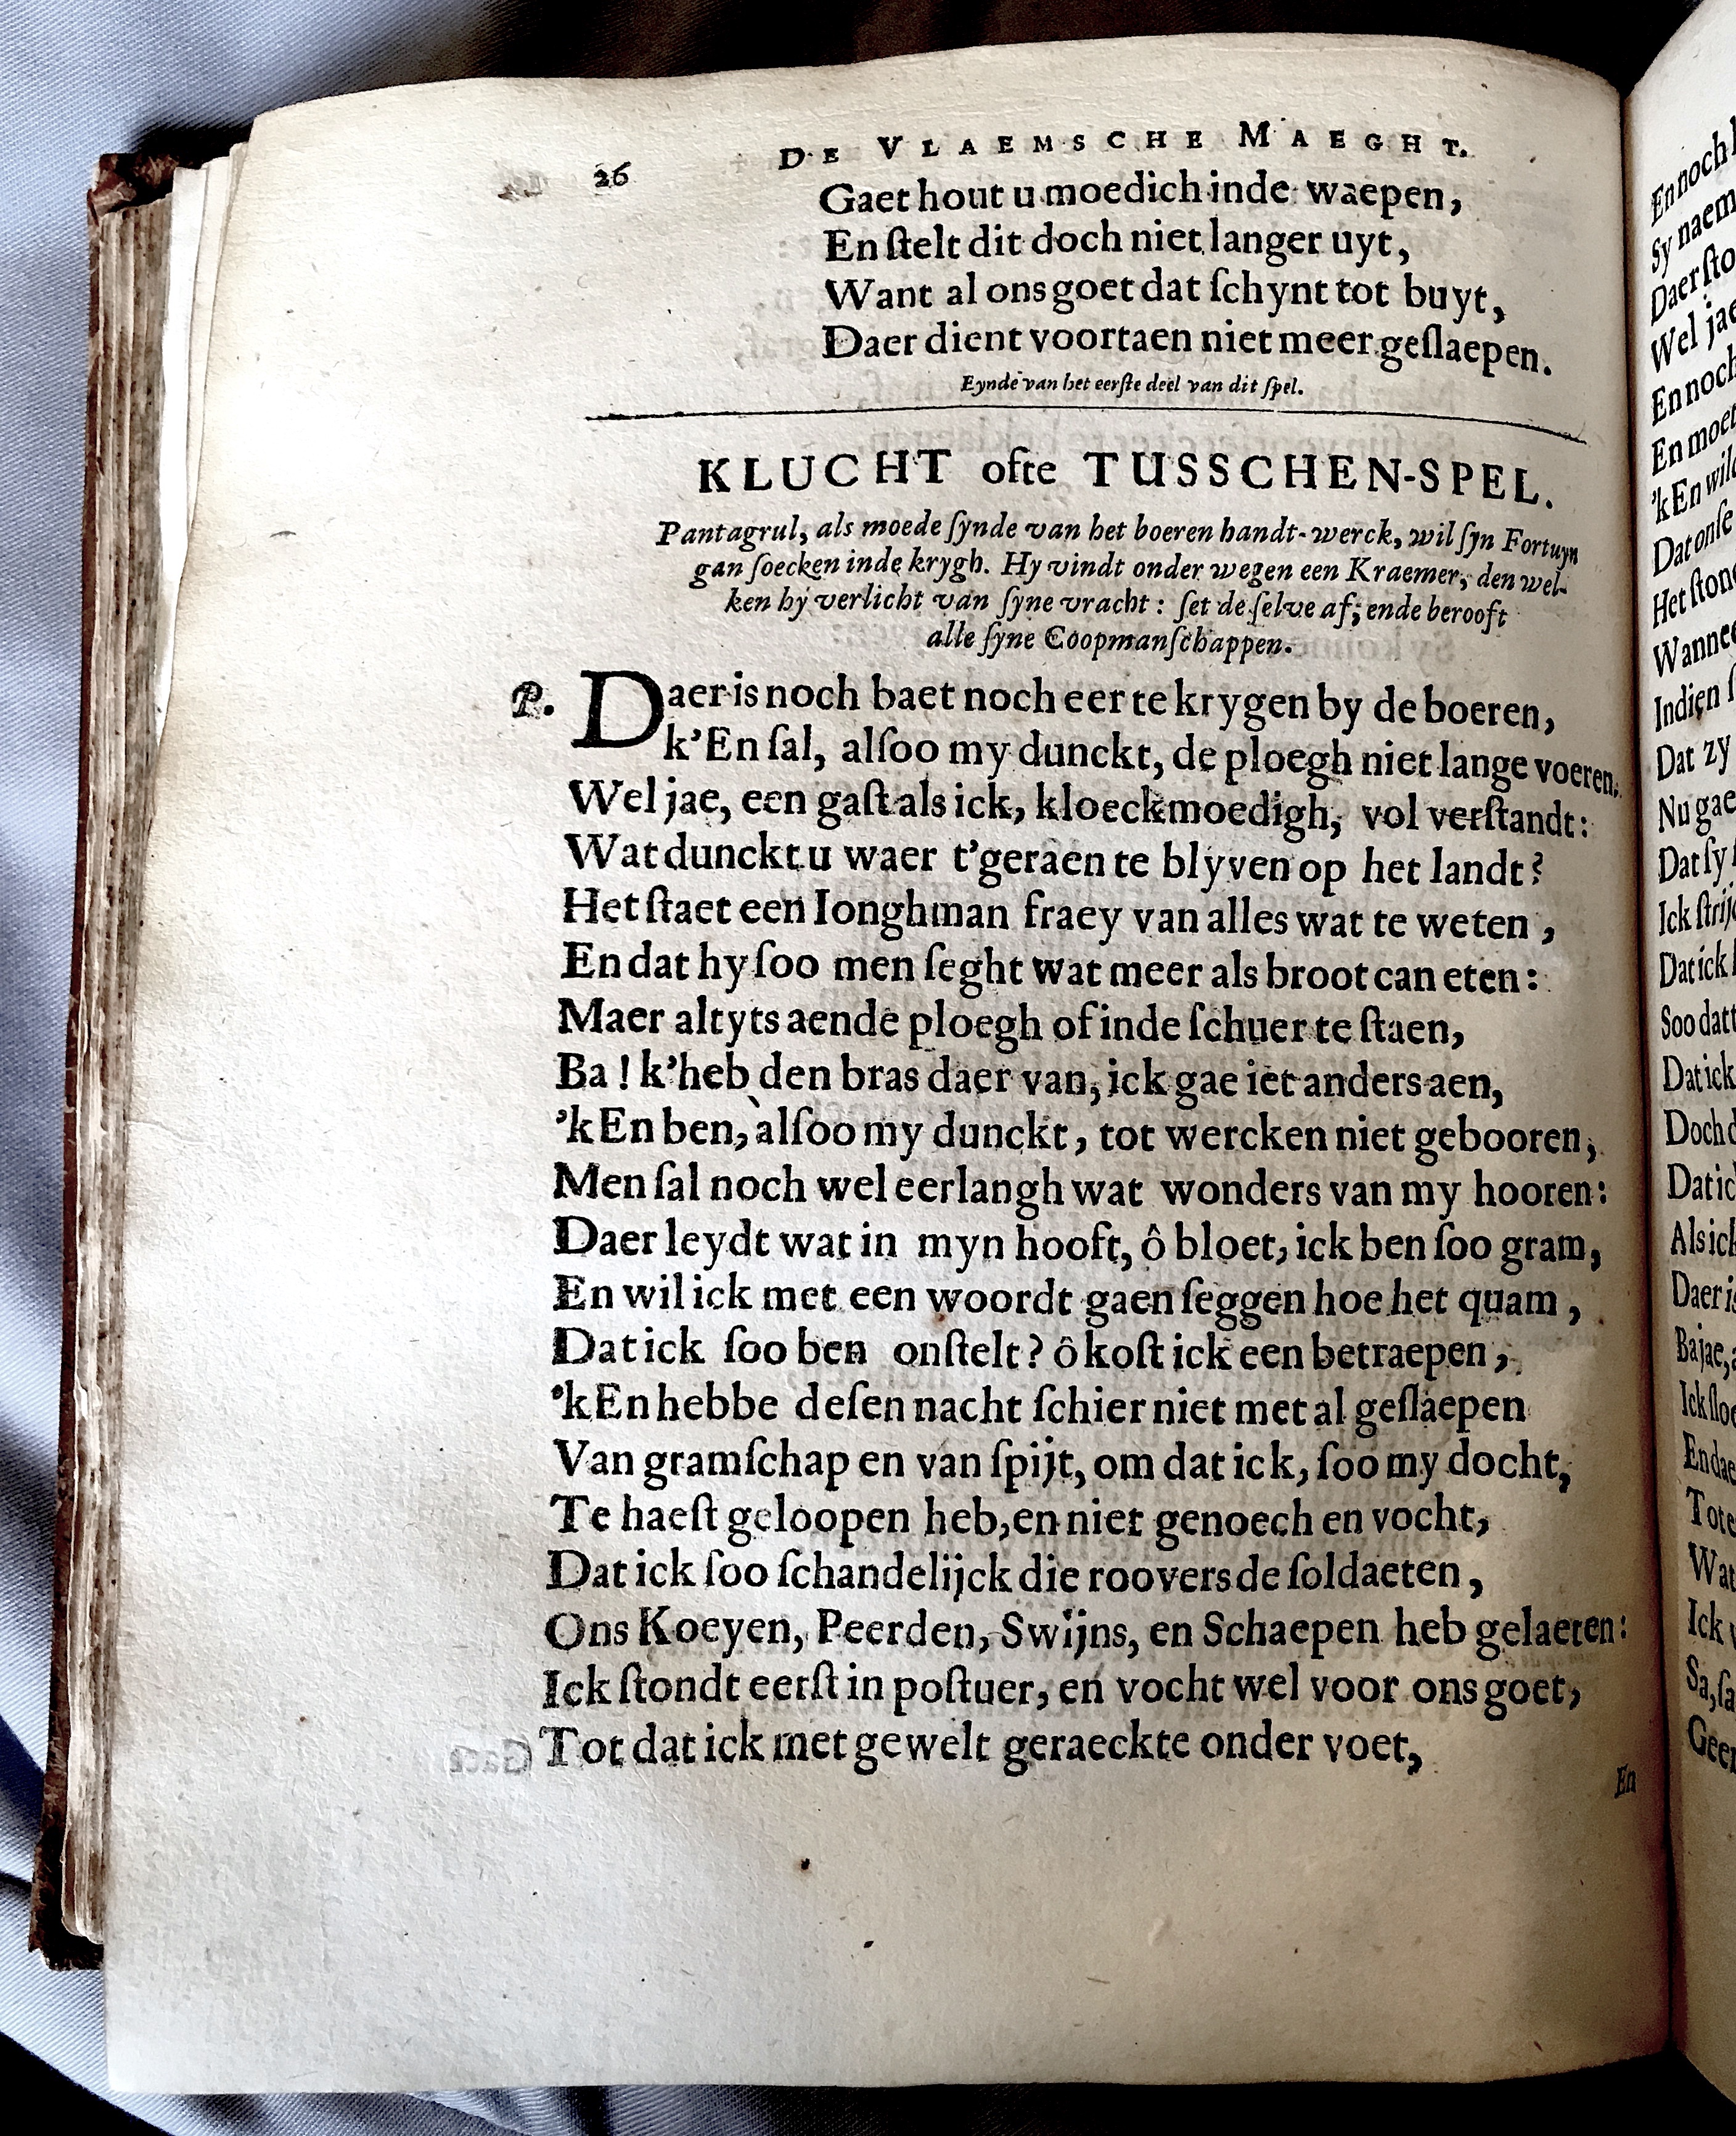 26
DE VLAEMSCHE MAEGHT.
Gaet hout u moedich inde waepen,
En ſtelt dit doch niet langer uyt,
Want al ons goet dat ſchynt tot buyt,
Daer dient voortaen niet meer geſlaepen.
Eynde van het eerſte deel van dit ſpel.
KLUCHT ofte TUSSCHEN-SPEL.
Pantagrul, als moede ſynde van het boeren handt-werck, wil ſyn Fortuyn
gan ſoecken inde krygh. Hy vindt onder wegen een Kraemer, den wel-
ken hy verlicht van ſyne vracht : ſet de ſelve af, ende berooft
alle ſyne Coopmanſchappen.
P. Daer is noch baet noch eer te krygen by de boeren,
k'En ſal, alſoo my dunckt, de ploegh niet lange voeren.
Wel jae, een gaſt als ick, kloeckmoedigh, vol verſtandt:
Wat dunckt u waer t'geraen te blyven op het landt?
Het ſtaet een Ionghman fraey van alles wat te weten,
En dat hy ſoo men ſeght wat meer als broot can eten:
Maer altyts aende ploegh of inde ſchuer te ſtaen,
Ba! k'heb den bras daer van, ick gae iet anders aen,
'k En ben, alſoo my dunckt, tot wercken niet gebooren,
Men ſal noch wel eerlangh wat wonders van my hooren:
Daer leydt wat in myn hooft, ô bloet, ick ben ſoo gram,
En wil ick met een woordt gaen ſeggen hoe het quam,
Dat ick ſoo ben onſtelt? ô koſt ick een betraepen,
'k En hebbe deſen nacht ſchier niet met al geſlaepen
Van gramſchap en van ſpijt, om dat ick, ſoo my docht,
Te haeſt geloopen heb, en niet genoech en vocht,
Dat ick ſoo ſchandelijck die roovers de ſoldaeten,
Ons Koeyen, Peerden, Swijns, en Schaepen heb gelaeten:
Ick ſtondt eerſt in poſtuer, en vocht wel voor ons goet,
Tot dat ick met gewelt geraeckte onder voet,
En
En noch
Sy naem
Daer ſto
Wel jae
En noch
En moet
'k En wil
Dat onſe
Het ſton
Wannee
Indien ſ
Dat zy
Nu gae
Dat ſy
Ick ſtrij
Dat ick
Soo dat
Dat ick
Doch d
Dat ic
Als ick
Daer is
Ba jae,
Ick ſlo
En dae
Tot
Wat
Ick
Sa, ſa
Geen